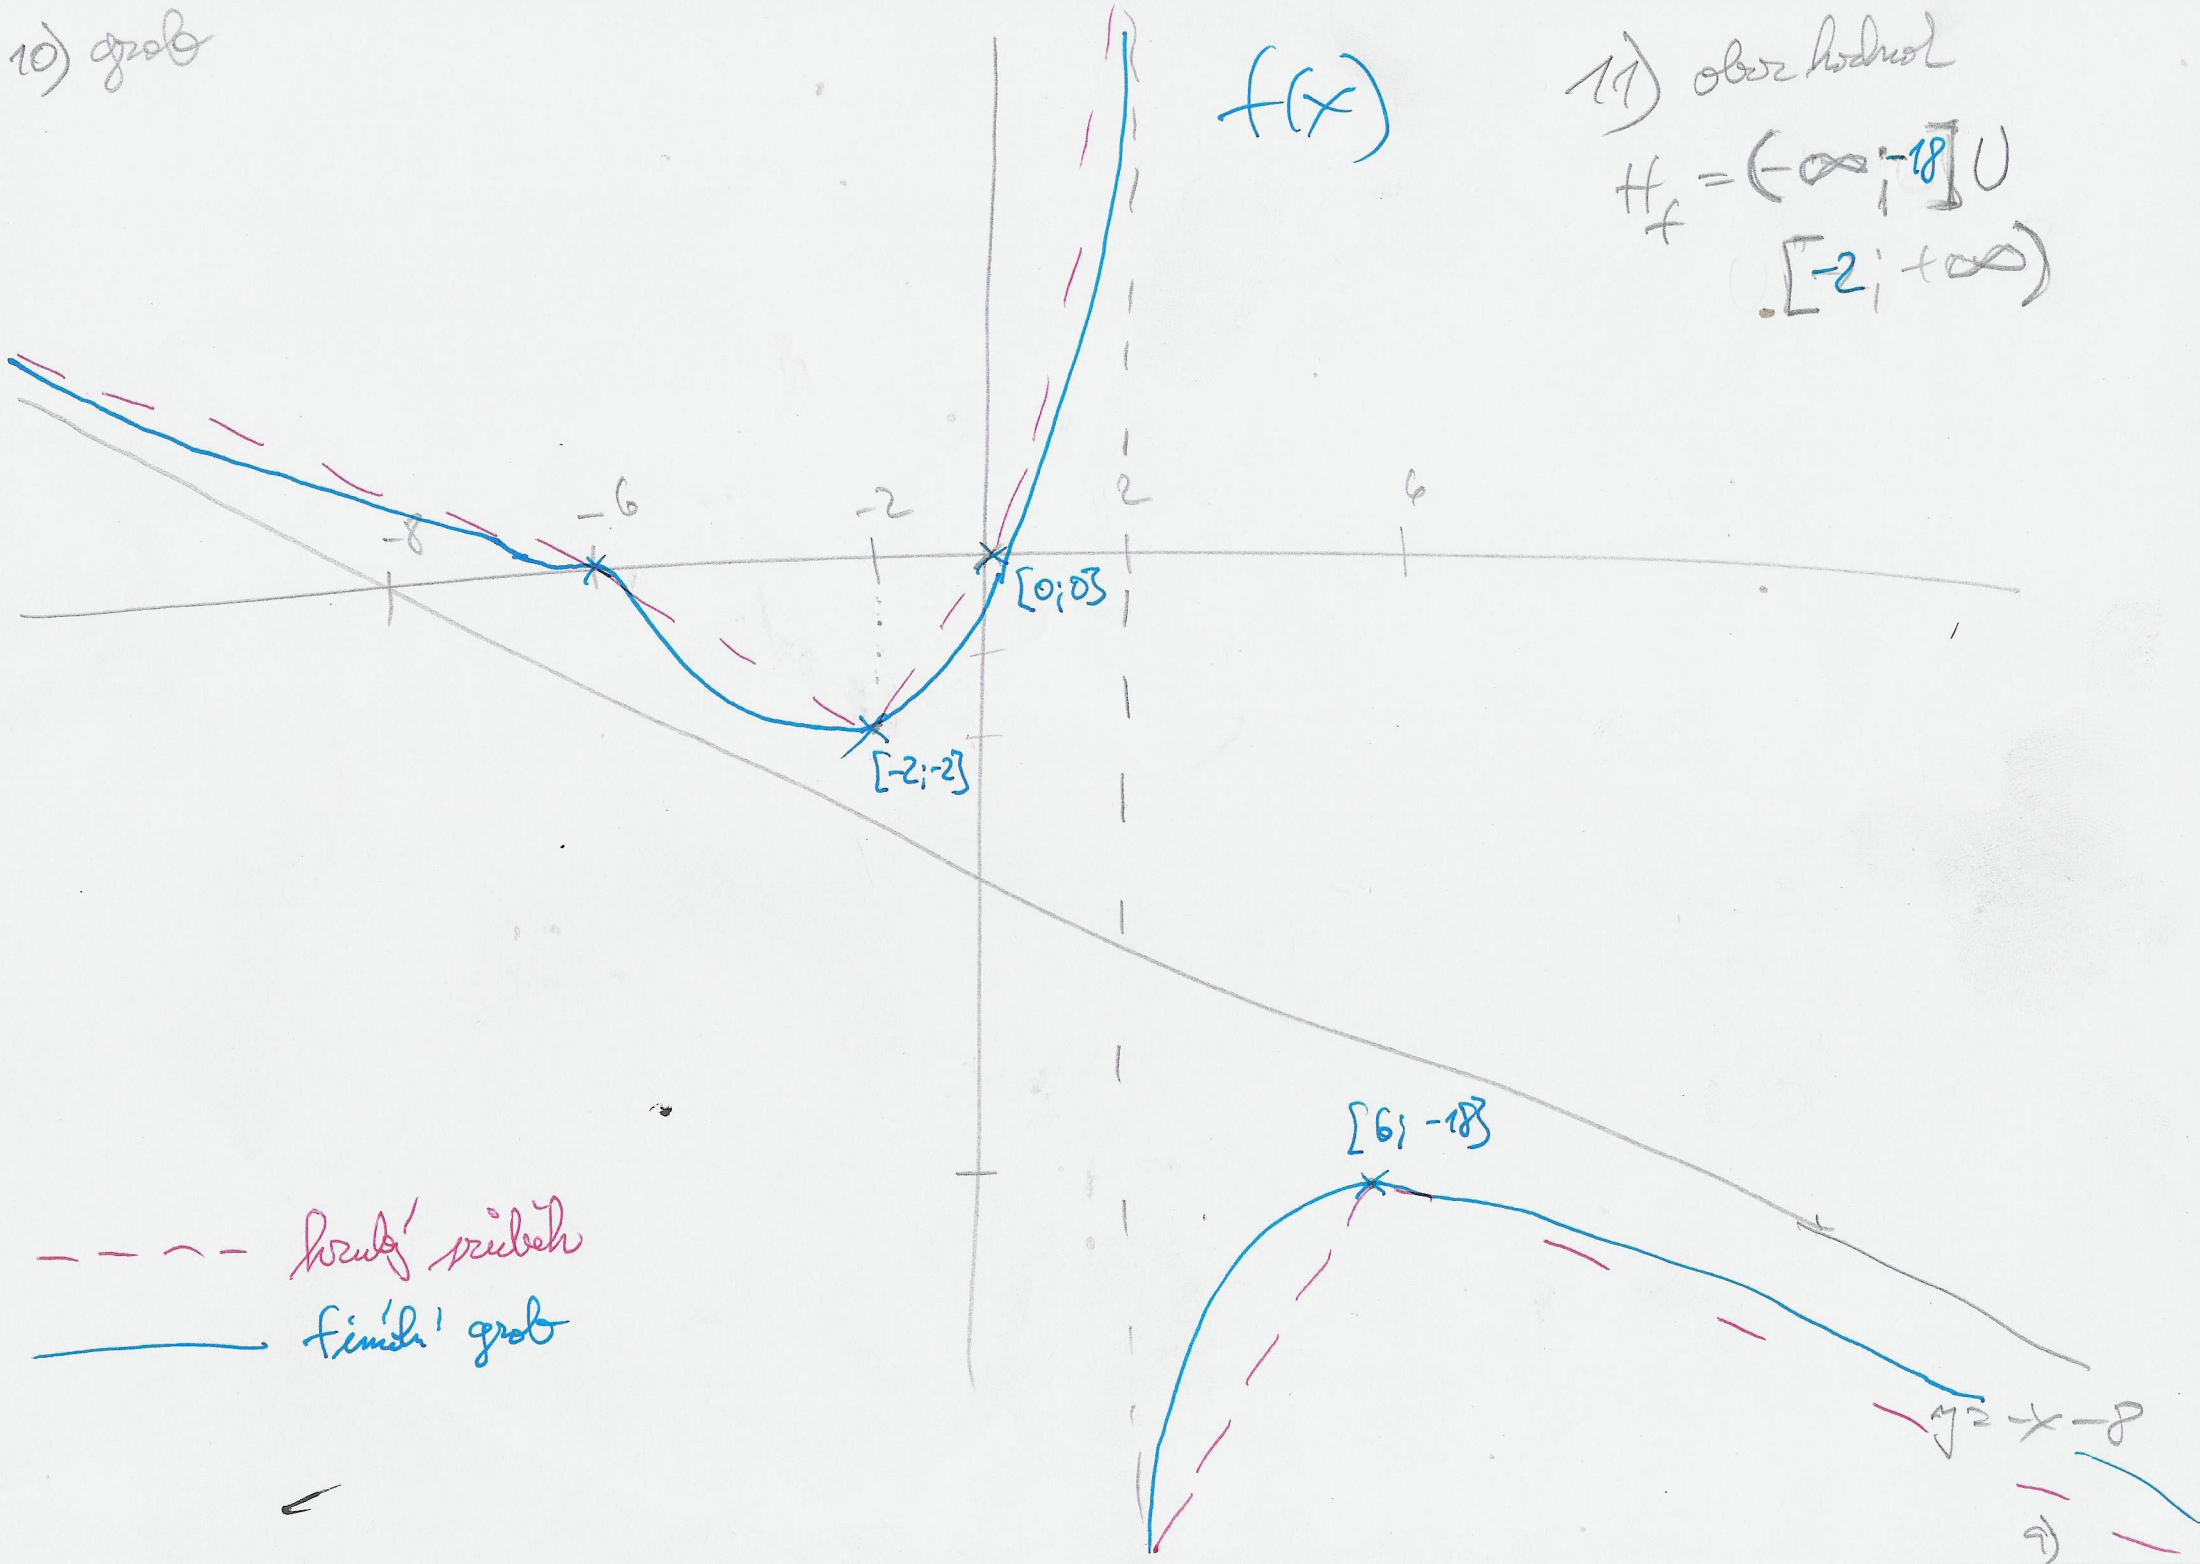 10) graf
f(x)
11) obor hodnot
H_f = (-∞; -18] ∪
[-2; +∞)
-8
-6
-2
2
6
[0; 0]
[-2; -2]
[6; -18]
hrubý průběh
finální graf
y = -x - 8